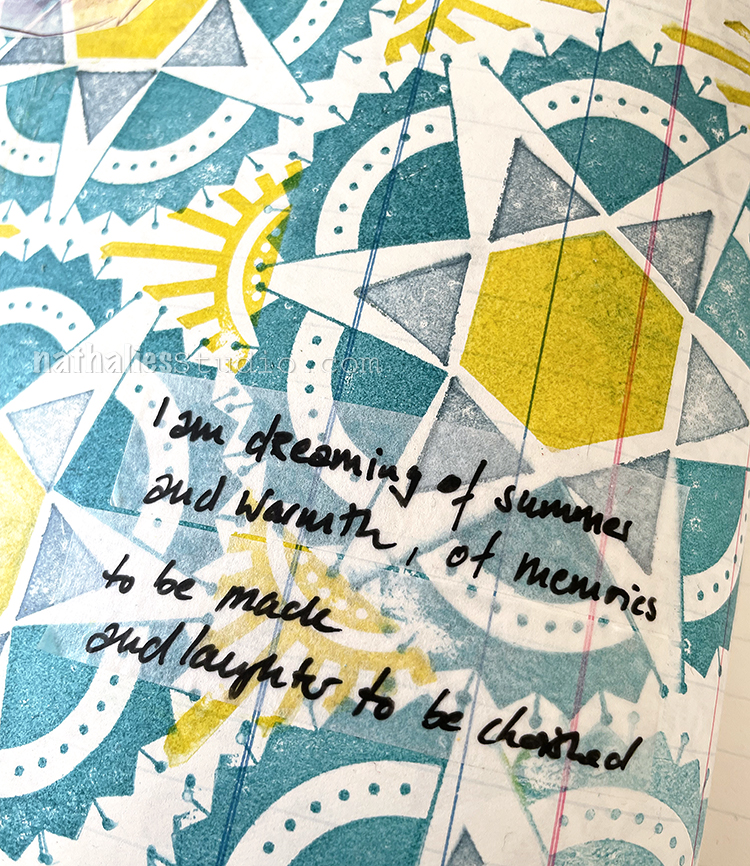 nathaliesstudio.com
I am dreaming of summer
and warmth, of memories
to be made
and laughter to be cherished